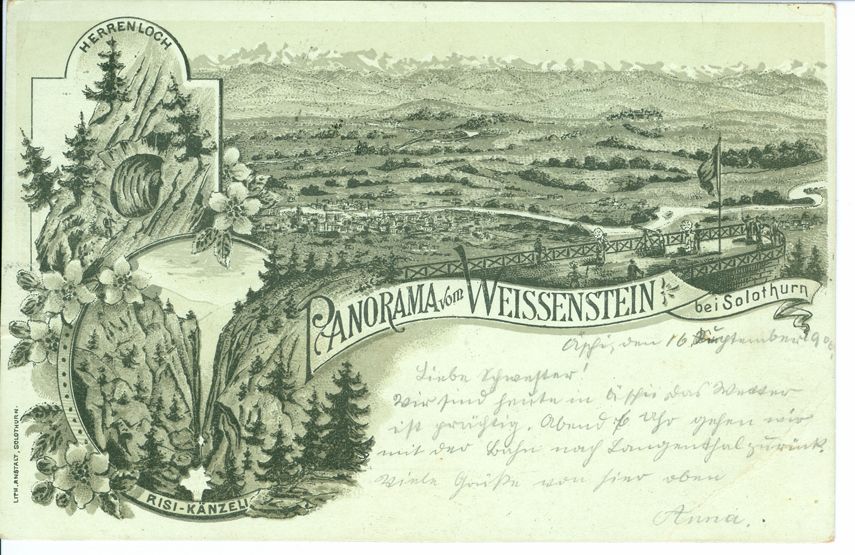 HERRENLOCH
PANORAMA vom WEISSENSTEIN
bei Solothurn
Äschi, den 16 September 190
Liebe Schwester!
Wir sind heute in Äschi das Wetter
ist prächtig. Abend 6 Uhr gehen wir
mit der Bahn nach Langenthal zurück.
Viele Grüße von hier oben
Anna.
RISI-KÄNZELI
LITH. ANSTALT, SOLOTHURN.